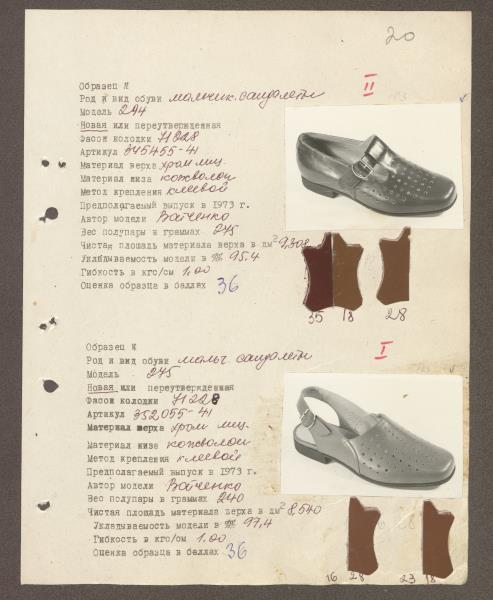 20
Образец №
II
Род и вид обуви мальчик. сандалеты
Модель 244
Новая или переутвержденная
Фасон колодки 71228
Артикул 345455-41
Материал верха хром лиц.
Материал низа кожволон
Метод крепления клеевой
Предполагаемый выпуск в 1973 г.
Автор модели Войченко
Вес полупары в граммах 245
Чистая площадь материала верха в дм² 9,308
Укладываемость модели в % 95,4
Гибкость в кгс/см 1,00
Оценка образца в баллах 36
35 18 28
Образец №
I
Род и вид обуви мальч. сандалеты
Модель 245
Новая или переутвержденная
Фасон колодки 71228
Артикул 352055-41
Материал верха хром лиц.
Материал низа кожволон
Метод крепления клеевой
Предполагаемый выпуск в 1973 г.
Автор модели Войченко
Вес полупары в граммах 240
Чистая площадь материала верха в дм² 8,540
Укладываемость модели в % 97,4
Гибкость в кгс/см 1,00
Оценка образца в баллах 36
16 28 23 18